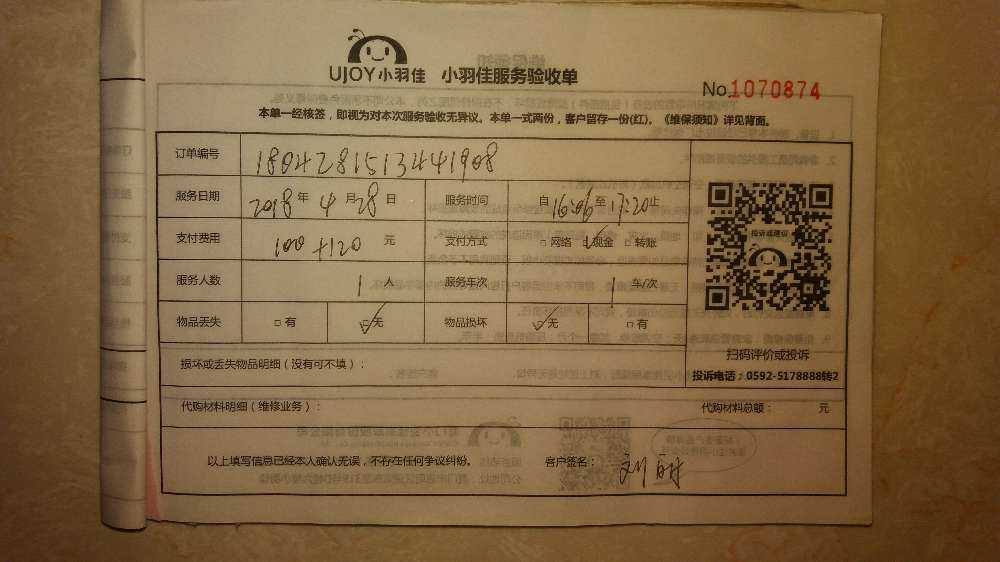 UJOY小羽佳 小羽佳服务验收单
No.1070874
本单一经核签，即视为对本次服务验收无异议。本单一式两份，客户留存一份(红)。《维保须知》详见背面。
订单编号 180428151344 1908
服务日期 2018年 4月 28日 服务时间 自16:06至17:20止
支付费用 100+120 元 支付方式 □网络 ☑现金 □转账
服务人数 1人 服务车次 1车/次
物品丢失 □有 ☑无 物品损坏 ☑无 □有
投诉或建议
扫码评价或投诉
投诉电话：0592-5178888转2
损坏或丢失物品明细（没有可不填）：
代购材料明细（维修业务）： 代购材料总额： 元
以上填写信息已经本人确认无误，不存在任何争议纠纷。 客户签名：刘